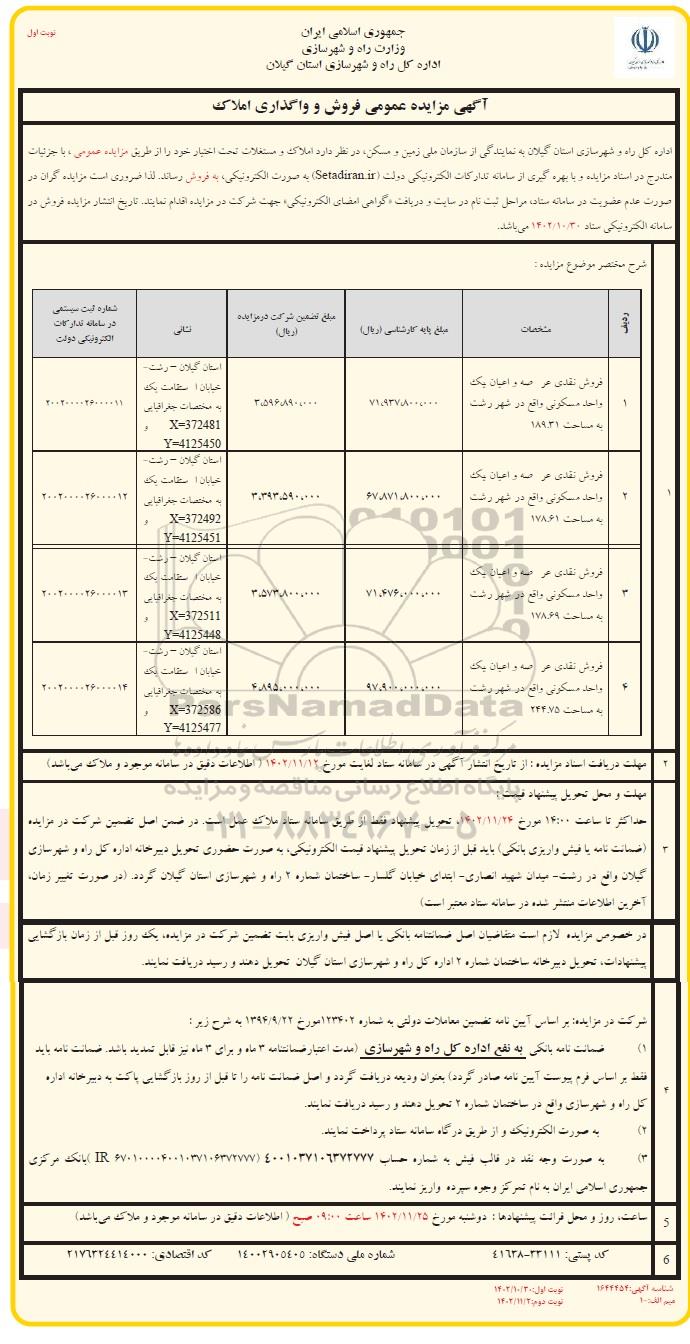 نوبت اول
جمهوری اسلامی ایران
وزارت راه و شهرسازی
اداره کل راه و شهرسازی استان گیلان
آگهی مزایده عمومی فروش و واگذاری املاک
اداره کل راه و شهرسازی استان گیلان به نمایندگی از سازمان ملی زمین و مسکن، در نظر دارد املاک و مستغلات تحت اختیار خود را از طریق مزایده عمومی ، با جزئیات
مندرج در اسناد مزایده و با بهره گیری از سامانه تدارکات الکترونیکی دولت (Setadiran.ir) به صورت الکترونیکی، به فروش رساند. لذا ضروری است مزایده گران در
صورت عدم عضویت در سامانه ستاد، مراحل ثبت نام در سایت و دریافت «گواهی امضای الکترونیکی» جهت شرکت در مزایده اقدام نمایند. تاریخ انتشار مزایده فروش در
سامانه الکترونیکی ستاد ۱۴۰۲/۱۰/۳۰ می‌باشد.
۱
شرح مختصر موضوع مزایده :
ردیف
مشخصات
مبلغ پایه کارشناسی (ریال)
مبلغ تضمین شرکت درمزایده
(ریال)
نشانی
شماره ثبت سیستمی
در سامانه تدارکات
الکترونیکی دولت
۱
فروش نقدی عر صه و اعیان یک
واحد مسکونی واقع در شهر رشت
به مساحت ۱۸۹.۳۱
۷۱،۹۳۷،۸۰۰،۰۰۰
۳،۵۹۶،۸۹۰،۰۰۰
استان گیلان – رشت-
خیابان ا ستقامت یک
به مختصات جغرافیایی
X=372481 و
Y=4125450
۲۰۰۲۰۰۰۰۲۶۰۰۰۰۱۱
۲
فروش نقدی عر صه و اعیان یک
واحد مسکونی واقع در شهر رشت
به مساحت ۱۷۸.۶۱
۶۷،۸۷۱،۸۰۰،۰۰۰
۳،۳۹۳،۵۹۰،۰۰۰
استان گیلان – رشت-
خیابان ا ستقامت یک
به مختصات جغرافیایی
X=372492 و
Y=4125451
۲۰۰۲۰۰۰۰۲۶۰۰۰۰۱۲
۳
فروش نقدی عر صه و اعیان یک
واحد مسکونی واقع در شهر رشت
به مساحت ۱۷۸.۶۹
۷۱،۴۷۶،۰۰۰،۰۰۰
۳،۵۷۳،۸۰۰،۰۰۰
استان گیلان – رشت-
خیابان ا ستقامت یک
به مختصات جغرافیایی
X=372511 و
Y=4125448
۲۰۰۲۰۰۰۰۲۶۰۰۰۰۱۳
۴
فروش نقدی عر صه و اعیان یک
واحد مسکونی واقع در شهر رشت
به مساحت ۲۴۴.۷۵
۹۷،۹۰۰،۰۰۰،۰۰۰
۴،۸۹۵،۰۰۰،۰۰۰
استان گیلان – رشت-
خیابان ا ستقامت یک
به مختصات جغرافیایی
X=372586 و
Y=4125477
۲۰۰۲۰۰۰۰۲۶۰۰۰۰۱۴
ParsNamadData
۲
مهلت دریافت اسناد مزایده : از تاریخ انتشار آگهی در سامانه ستاد لغایت مورخ ۱۴۰۲/۱۱/۱۲ ( اطلاعات دقیق در سامانه موجود و ملاک می‌باشد)
پایگاه اطلاع رسانی مناقصه و مزایده
۳
مهلت و محل تحویل پیشنهاد قیمت :
حداکثر تا ساعت ۱۴:۰۰ مورخ ۱۴۰۲/۱۱/۲۴، تحویل پیشنهاد فقط از طریق سامانه ستاد ملاک عمل است. در ضمن اصل تضمین شرکت در مزایده
(ضمانت نامه یا فیش واریزی بانکی) باید قبل از زمان تحویل پیشنهاد قیمت الکترونیکی، به صورت حضوری تحویل دبیرخانه اداره کل راه و شهرسازی
گیلان واقع در رشت- میدان شهید انصاری- ابتدای خیابان گلسار- ساختمان شماره ۲ راه و شهرسازی استان گیلان گردد. (در صورت تغییر زمان،
آخرین اطلاعات منتشر شده در سامانه ستاد معتبر است)
در خصوص مزایده لازم است متقاضیان اصل ضمانتنامه بانکی یا اصل فیش واریزی بابت تضمین شرکت در مزایده، یک روز قبل از زمان بازگشایی
پیشنهادات، تحویل دبیرخانه ساختمان شماره ۲ اداره کل راه و شهرسازی استان گیلان تحویل دهند و رسید دریافت نمایند.
۴
شرکت در مزایده: بر اساس آیین نامه تضمین معاملات دولتی به شماره ۱۲۳۴۰۲مورخ ۱۳۹۴/۹/۲۲ به شرح زیر :
۱) ضمانت نامه بانکی به نفع اداره کل راه و شهرسازی (مدت اعتبارضمانتنامه ۳ ماه و برای ۳ ماه نیز قابل تمدید باشد. ضمانت نامه باید
فقط بر اساس فرم پیوست آیین نامه صادر گردد) بعنوان ودیعه دریافت گردد و اصل ضمانت نامه را تا قبل از روز بازگشایی پاکت به دبیرخانه اداره
کل راه و شهرسازی واقع در ساختمان شماره ۲ تحویل دهند و رسید دریافت نمایند.
۲) به صورت الکترونیک و از طریق درگاه سامانه ستاد پرداخت نمایند.
۳) به صورت وجه نقد در قالب فیش به شماره حساب ۴۰۰۱۰۳۷۱۰۶۳۷۲۷۷۷ (IR ۶۷۰۱۰۰۰۰۴۰۰۱۰۳۷۱۰۶۳۷۲۷۷۷ )بانک مرکزی
جمهوری اسلامی ایران به نام تمرکز وجوه سپرده واریز نمایند.
5
ساعت، روز و محل قرائت پیشنهادها : دوشنبه مورخ ۱۴۰۲/۱۱/۲۵ ساعت ۰۹:۰۰ صبح ( اطلاعات دقیق در سامانه موجود و ملاک می‌باشد)
6
کد پستی: ۳۳۱۱۱-۴۱۶۳۸ شماره ملی دستگاه: ۱۴۰۰۲۹۰۵۴۰۵ کد اقتصادی: ۲۱۷۶۳۲۴۴۱۴۰۰۰
شناسه آگهی:۱۶۴۴۴۵۴ نوبت اول:۱۴۰۲/۱۰/۳۰
میم الف:۱۰ نوبت دوم:۱۴۰۲/۱۱/۲